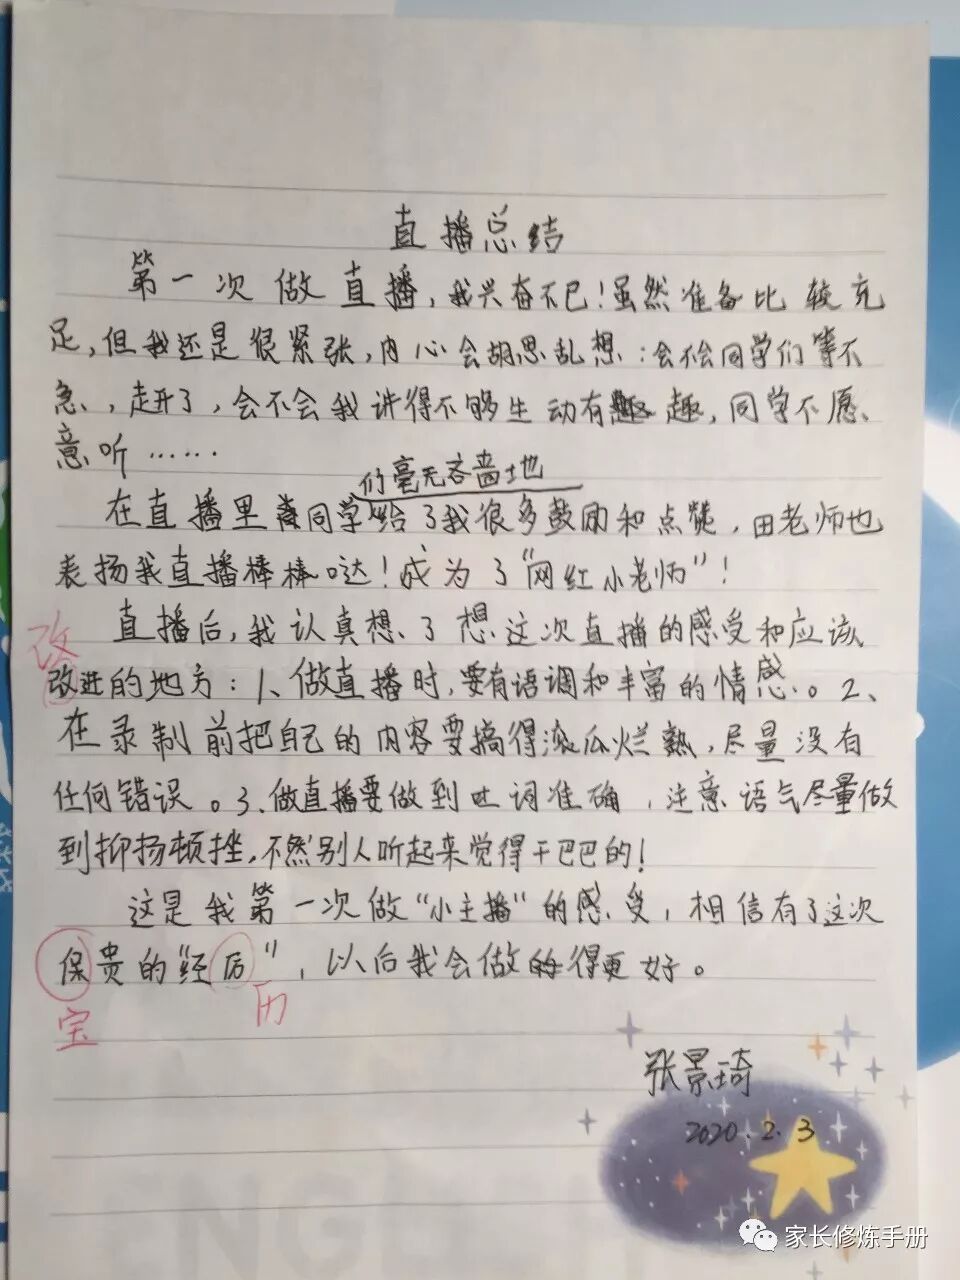 直播总结
第一次做直播，我兴奋不已！虽然准备比较充
足，但我还是很紧张，内心会胡思乱想：会不会同学们等不
急，走开了，会不会我讲得不够生动有趣，同学不愿
意听……
们毫无吝啬地
在直播里同学给了我很多鼓励和点赞，田老师也
表扬我直播棒棒哒！成为了“网红小老师”！
直播后，我认真想了想这次直播的感受和应该
改
改进的地方：1、做直播时，要有语调和丰富的情感。2、
在录制前把自己的内容要搞得滚瓜烂熟，尽量没有
任何错误。3、做直播要做到吐词准确，注意语气尽量做
到抑扬顿挫，不然别人听起来觉得干巴巴的！
这是我第一次做“小主播”的感受，相信有了这次
保贵的“经历”，以后我会做得更好。
宝 历
张景琦
2020.2.3
ENGL
家长修炼手册